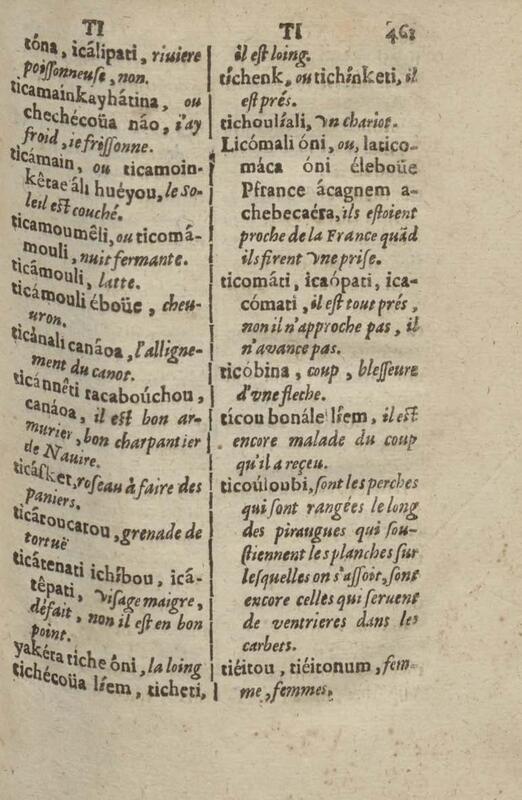 TI
tóna, icálipati, riuiere
poissonneuse, non.
ticamainkayhátina, ou
chechécoüa náo, i'ay
froid, ie frissonne.
ticámain, ou ticamoin-
kêtae áli huéyou, le So-
leil est couché.
ticamoumêli, ou ticomá-
mouli, nuit fermante.
ticâmouli, latte.
ticámouli éboüe, cheu-
uron.
ticánali canáoa, l'alligne-
ment du canot.
ticánnêti racaboúchou,
canáoa, il est bon ar-
murier, bon charpantier
de Nauire.
ticásket, roseau à faire des
paniers.
ticátoucatou, grenade de
tortuë
ticátenati ichíbou, icá-
têpati, visage maigre,
défait, non il est en bon
point.
yakéta tiche óni, la loing
tichécoüa líem, ticheti,
TI 461
il est loing.
tíchenk, ou tichínketi, il
est prés.
tichoulíali, vn chariot.
Licómali óni, ou, latico-
máca óni éleboüe
Pfrance ácagnem a-
chebecaéra, ils estoient
proche de la France quãd
ils firent vne prise.
ticomáti, icaópati, ica-
cómati, il est tout prés,
non il n'approche pas, il
n'avance pas.
ticóbina, coup, blesseure
d'vne fleche.
tícou bonále líem, il est
encore malade du coup
qu'il a reçeu.
ticoúloubi, sont les perches
qui sont rangées le long
des piraugues qui sou-
stiennent les planches sur
lesquelles on s'assoit, sont
encore celles qui seruent
de ventrieres dans les
carbets.
tiéitou, tiéitonum, fem-
me, femmes.